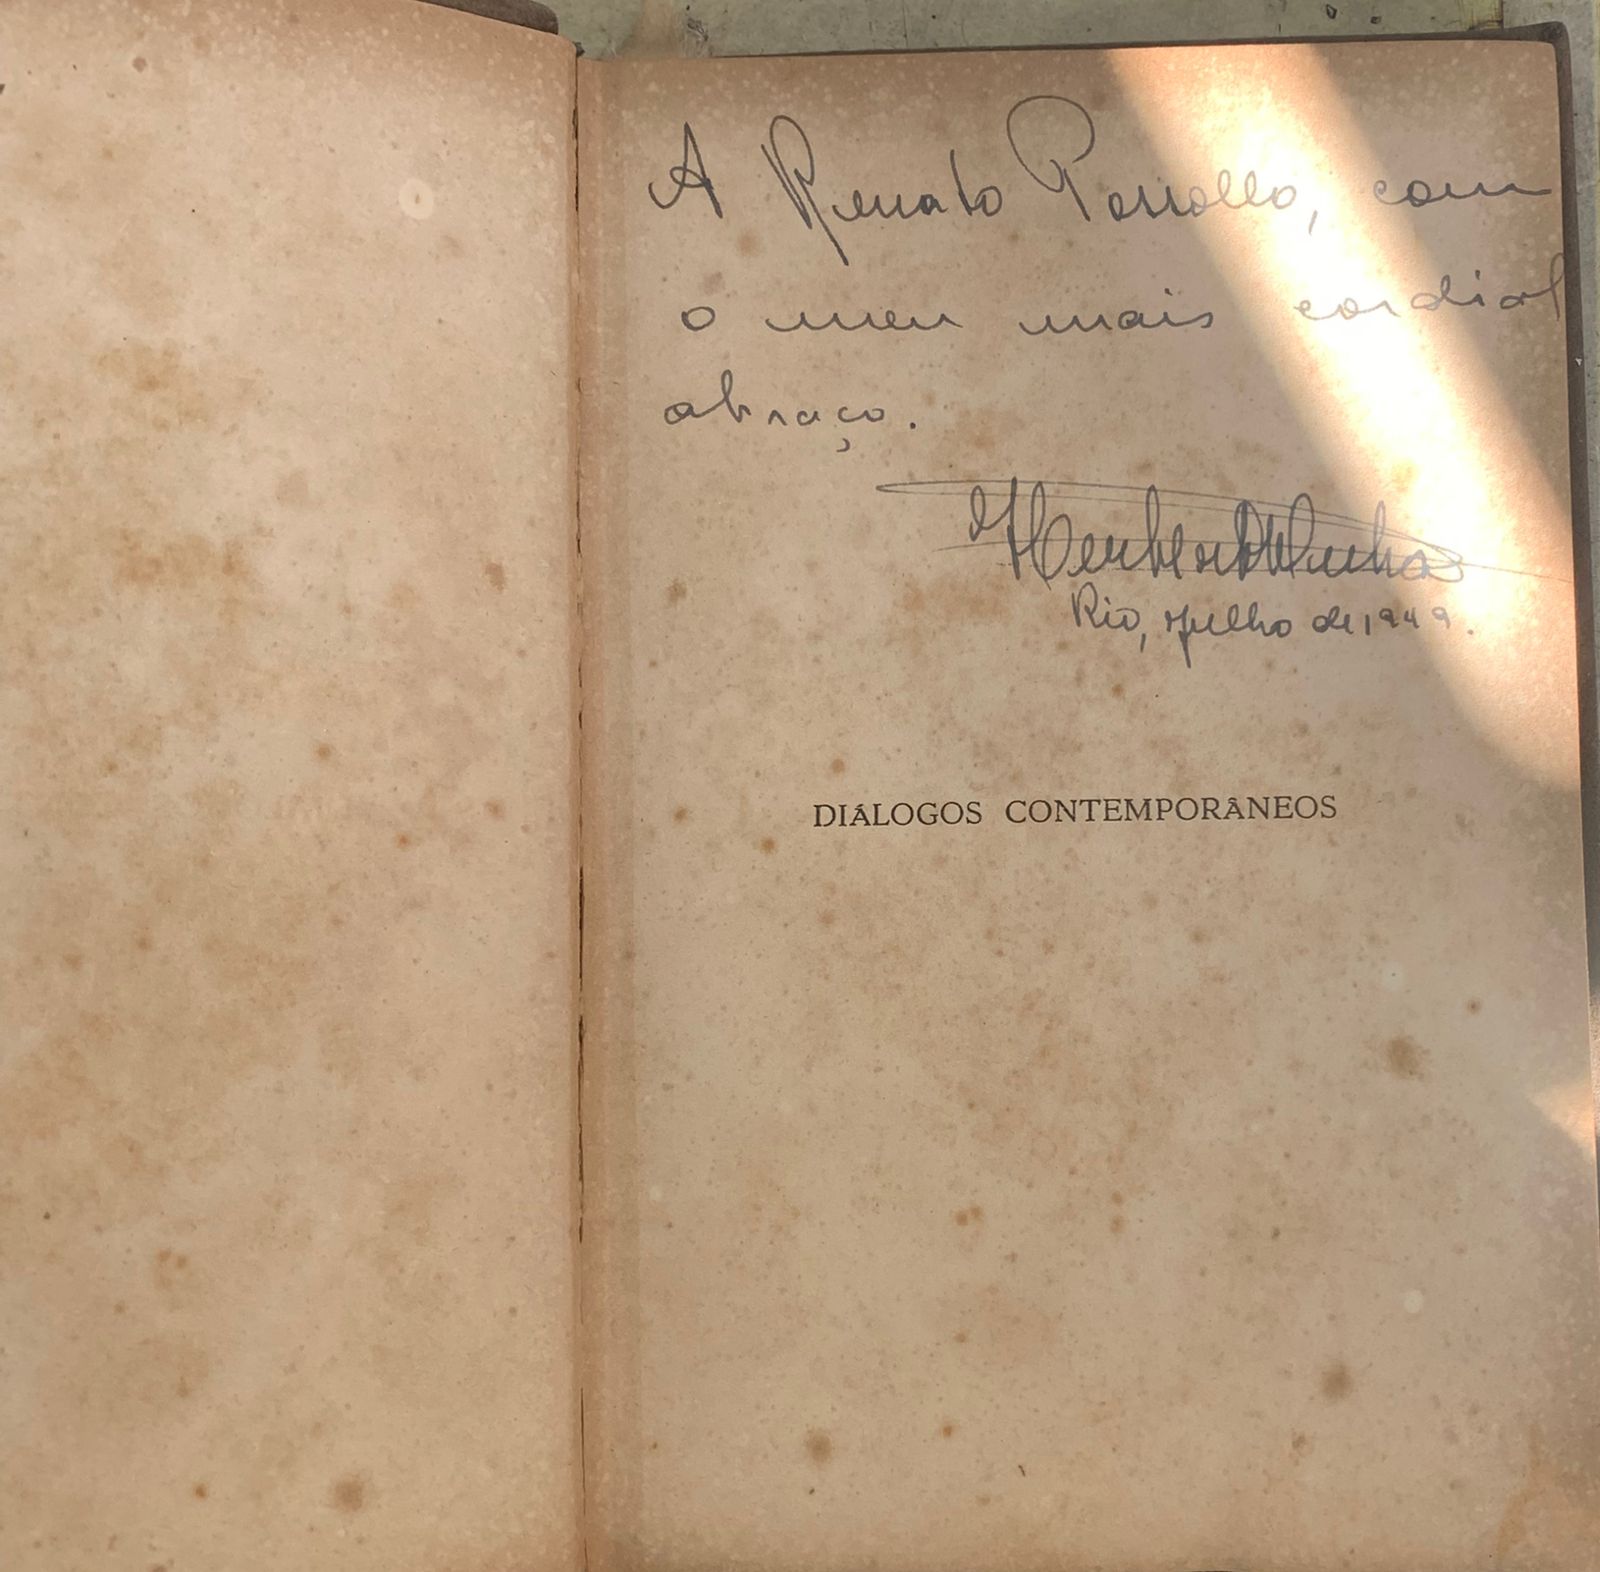 A Renato Possollo, com
o meu mais cordial
abraço.
Rio, julho de 1949.
DIÁLOGOS CONTEMPORÂNEOS